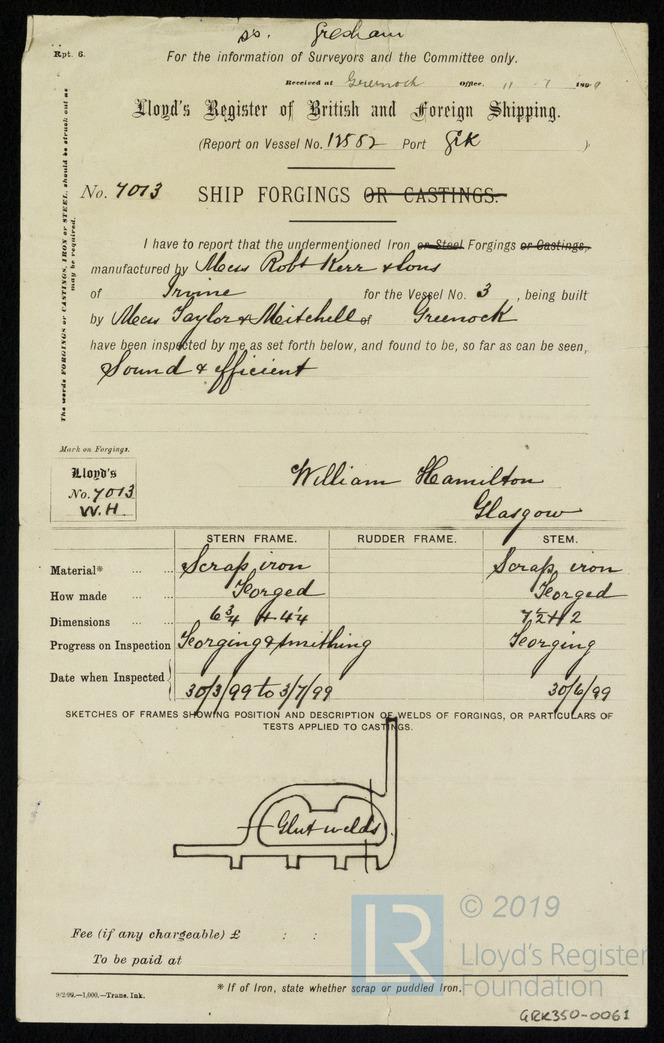 ss. Gresham
Rpt. 6.
For the information of Surveyors and the Committee only.
Received at Greenock Office. 11 - 7 1899
Lloyd's Register of British and Foreign Shipping.
(Report on Vessel No. 12582 Port Grk )
No. 7013 SHIP FORGINGS OR CASTINGS.
The words FORGINGS or CASTINGS, IRON or STEEL, should be struck out as may be required.
I have to report that the undermentioned Iron or Steel Forgings or Castings,
manufactured by Mess Robt Kerr & Sons
of Irvine for the Vessel No. 3 , being built
by Mess Taylor & Mitchell of Greenock
have been inspected by me as set forth below, and found to be, so far as can be seen,
Sound & efficient
Mark on Forgings.
Lloyd's
No. 7013
W.H
William Hamilton
Glasgow
STERN FRAME. RUDDER FRAME. STEM.
Material* ... ... Scrap iron Scrap iron
How made ... Forged Forged
Dimensions ... ... 6 3/4 × 4 1/4 7 1/2 × 2
Progress on Inspection Forging & smithing Forging
Date when Inspected 30/3/99 to 3/7/99 30/6/99
SKETCHES OF FRAMES SHOWING POSITION AND DESCRIPTION OF WELDS OF FORGINGS, OR PARTICULARS OF
TESTS APPLIED TO CASTINGS.
Glut welds
Fee (if any chargeable) £ : :
To be paid at
*If of Iron, state whether scrap or puddled Iron.
9/2/99.—1,000.—Trans. Ink.
LR
© 2019
Lloyd's Register
Foundation
GRK350-0061